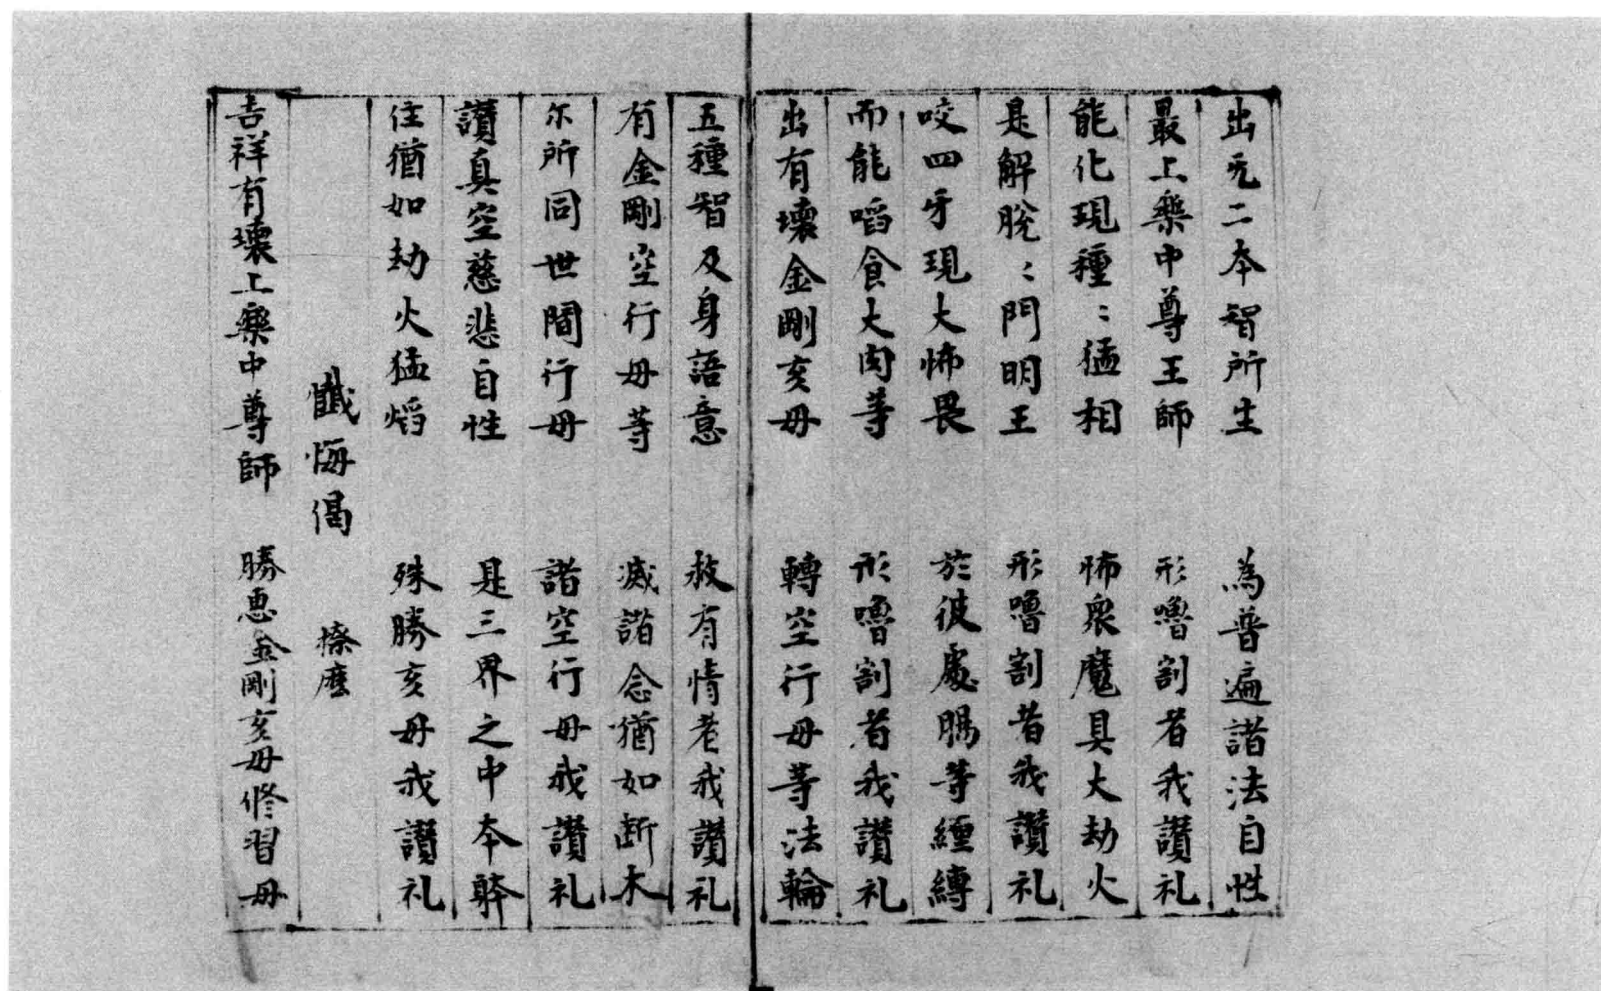 出旡二本智所生　為普遍諸法自性
最上樂中尊王師　形嚕割者我讚礼
能化現種〻猛相　怖衆魔具大劫火
是解脫〻門明王　形嚕割者我讚礼
咬四牙現大怖畏　於彼處賜等纏縛
而能啗食大肉等　形嚕割者我讚礼
出有壞金剛亥母　轉空行母等法輪
五種智及身語意　救有情者我讚礼
有金剛空行母等　滅諸念猶如断木
尓所同世間行母　諸空行母我讚礼
讚真空慈悲自性　是三界之中本躰
住猶如劫火猛焰　殊勝亥母我讚礼
懺悔偈　擦麽
吉祥有壞上樂中尊師　勝惠金剛亥母修習母